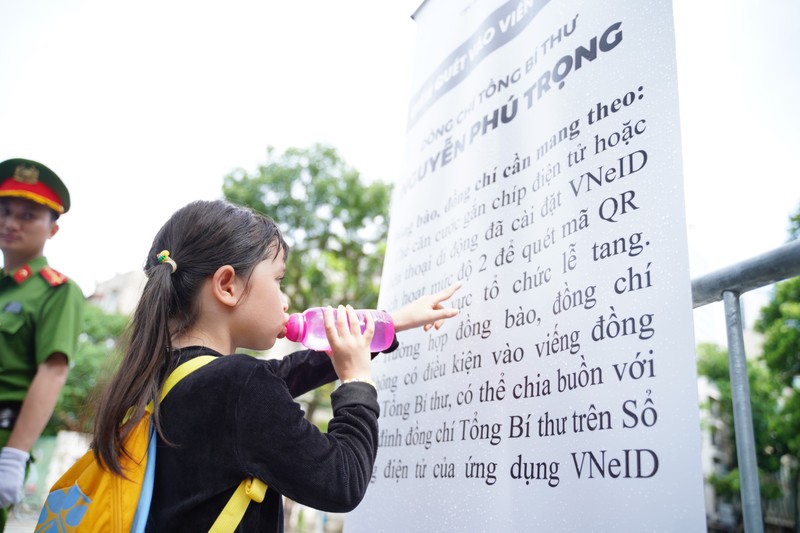 QUÉT VÀO VIẾN
ĐỒNG CHÍ TỔNG BÍ THƯ
NGUYỄN PHÚ TRỌNG
bào, đồng chí cần mang theo:
căn cước gắn chíp điện tử hoặc
thoại di động đã cài đặt VNeID
hoạt mức độ 2 để quét mã QR
vực tổ chức lễ tang.
hợp đồng bào, đồng chí
có điều kiện vào viếng đồng
Tổng Bí thư, có thể chia buồn với
đình đồng chí Tổng Bí thư trên Sổ
điện tử của ứng dụng VNeID